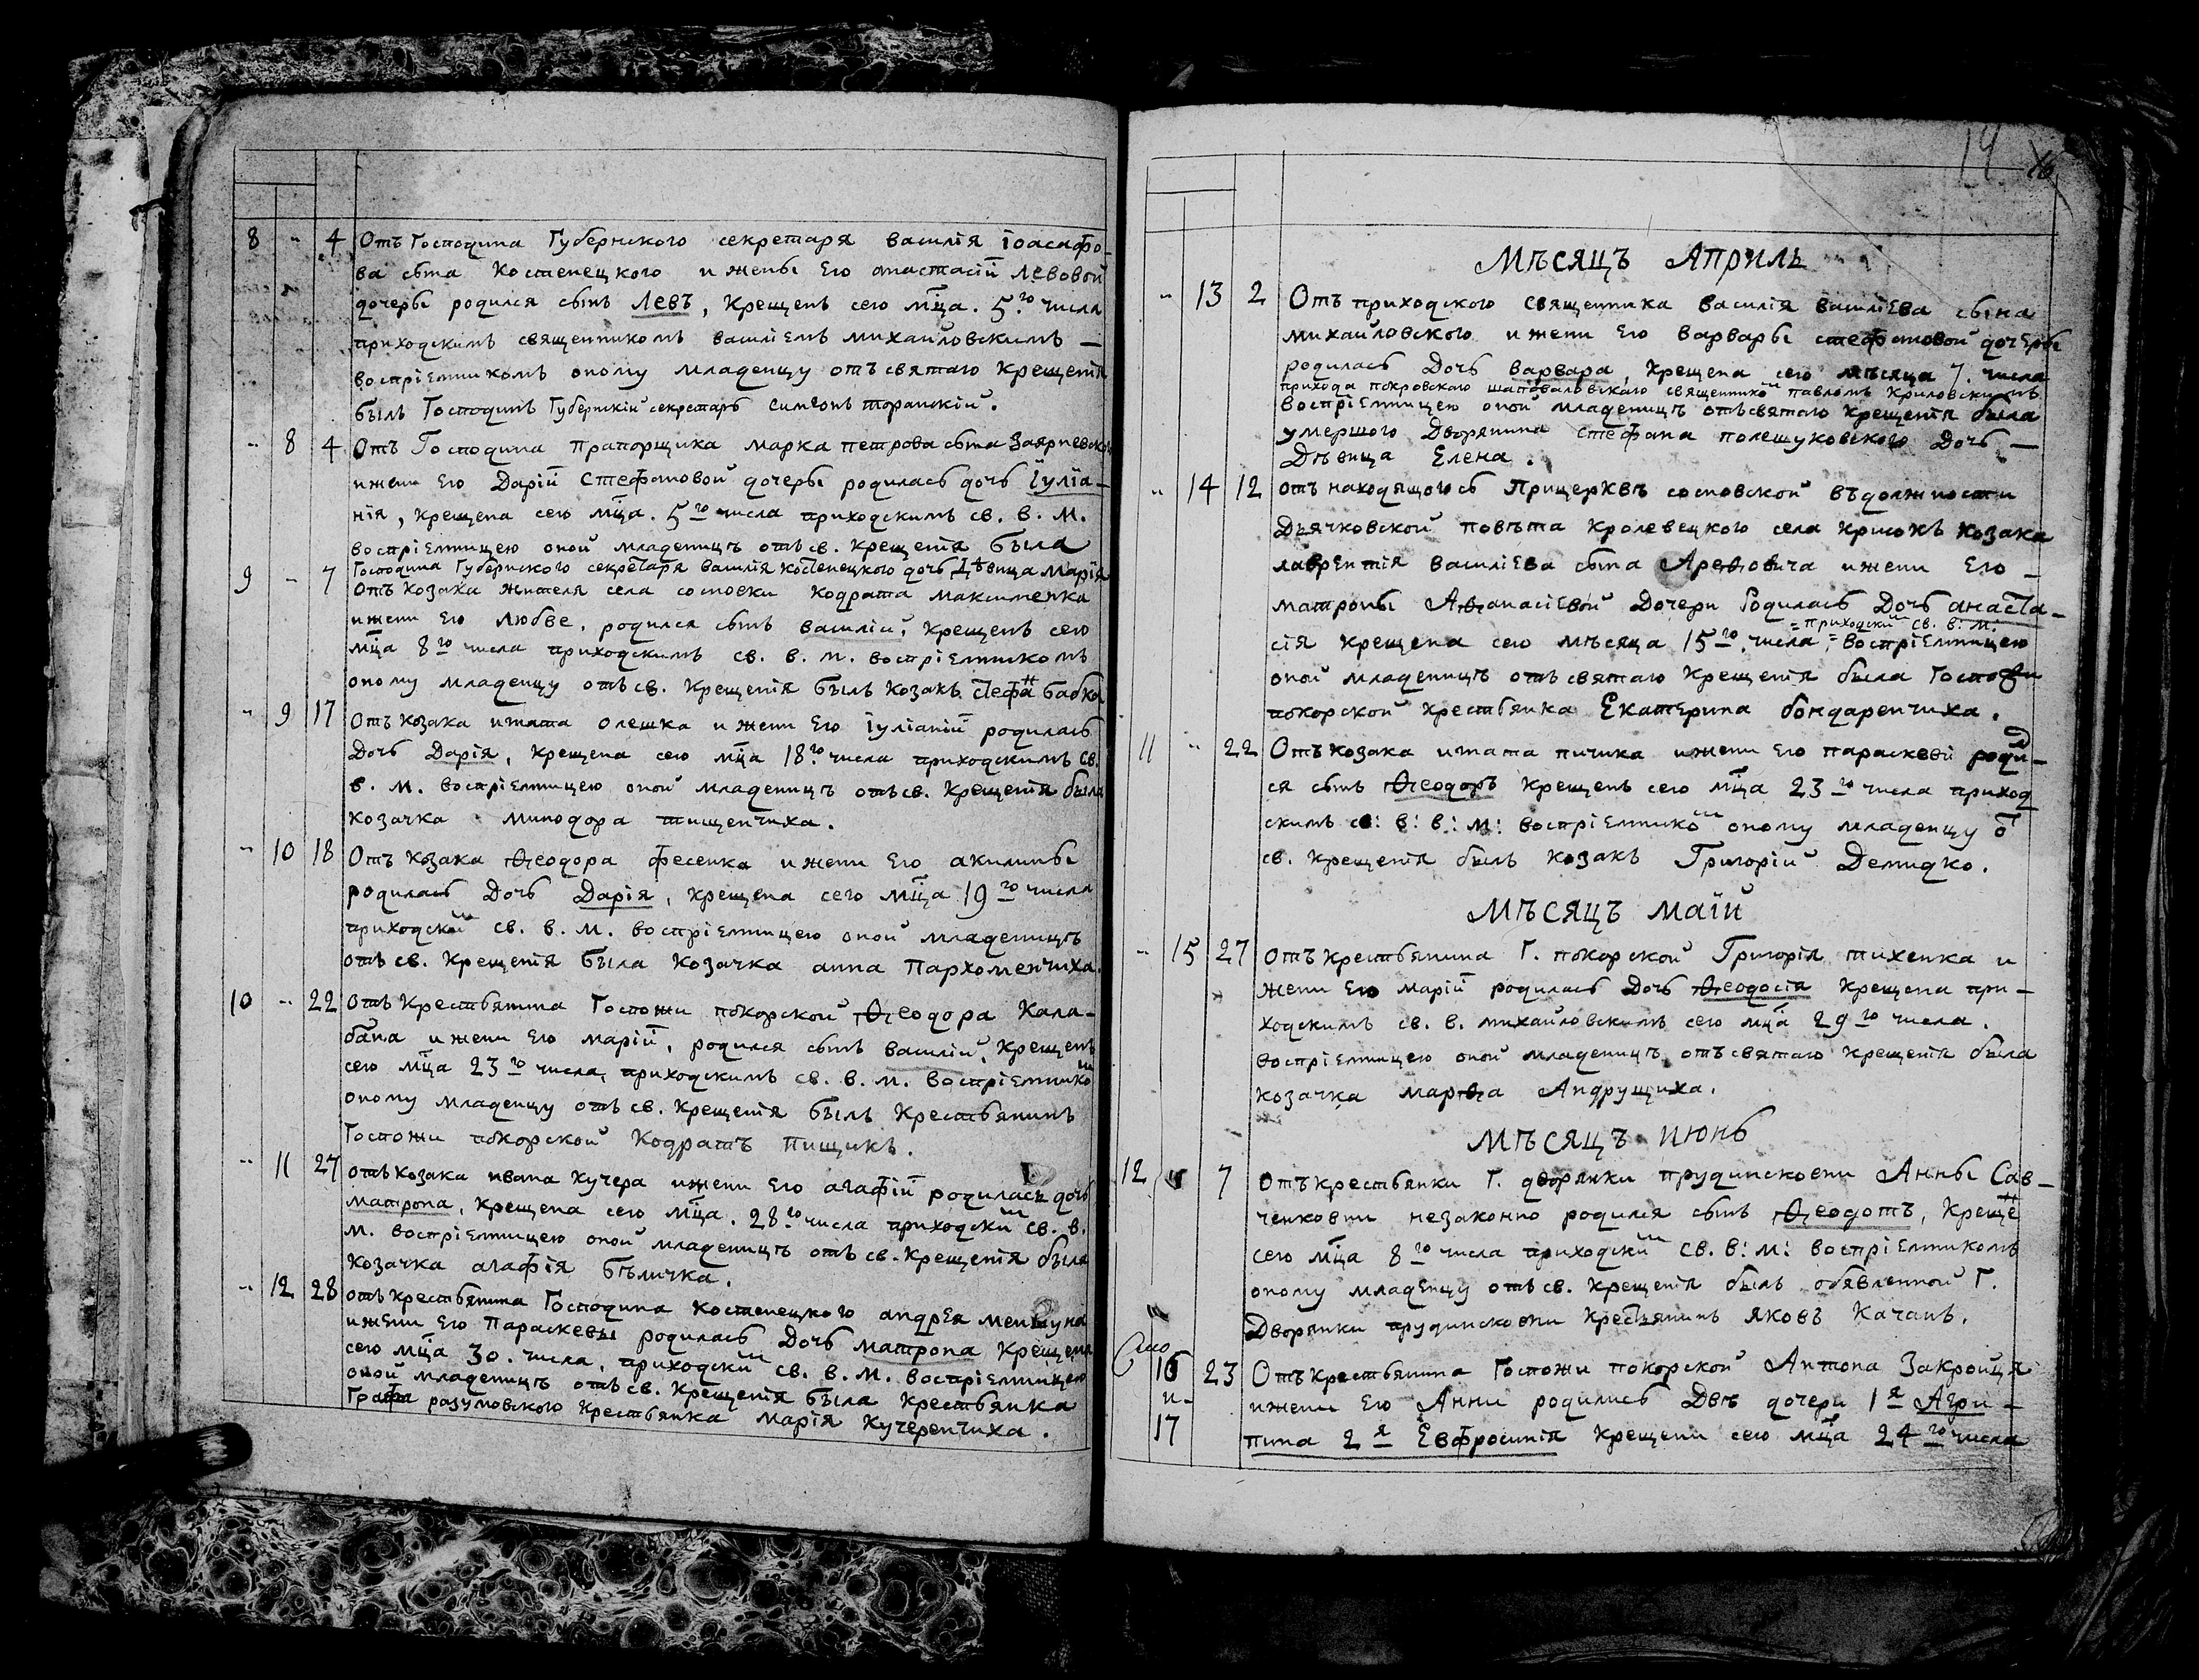 8 " 4 Отъ Господина Губернского секретаря василія іоасафо-
ва сына Костенецкого и жены Его анастасіи левовой
дочеры родился сынъ Левъ, Крещенъ сего мца. 5.го числа
приходскимъ священникомъ василіемъ михайловскимъ —
воспріемникомъ оному младенцу отъ святаго Крещенія
былъ Господинъ Губернскій секретарь симеонъ
" 8 4 Отъ Господина Прапорщика марка петрова сына
и жени Его Даріи Стефановой дочеры родилась дочь Іуліа-
нія, крещена сего мца. 5го числа приходскимъ св. в. м.
воспріемницею оной младеницѣ отъ св. Крещенія была
Господина Губернского секретаря василія Костенецкого дочь Дѣвица Марія
9 - 7 Отъ Козака жителя села сосновки Кодрата максименка
и жени Его Любве, родился сынъ василій, Крещенъ сего
мца 8го числа приходскимъ св. в. м. воспріемникомъ
оному младенцу отъ св. Крещенія былъ Козакъ Стефан бабко
" 9 17 Отъ Козака игната олешка и жени Его Іуліаніи родилась
Дочь Дарія, крещена сего мца 18го числа приходскимъ св.
в. м. воспріемницею оной младеницѣ отъ св. Крещенія была
козачка минодора тищенчиха.
" 10 18 Отъ Козака Ѳеодора фесенка и жени Его акилины
родилась Дочь Дарія, крещена сего мца 19го числа
приходским св. в. м. воспріемницею оной младеницѣ
отъ св. Крещенія была Козачка анна Пархоменчиха.
10 " 22 Отъ Крестьянина Госпожи покорской Ѳеодора Кала-
бана и жени Его маріи, родился сынъ василій, Крещенъ
сего мца 23го числа, приходскимъ св. в. м. воспріемником
оному младенцу отъ св. крещенія былъ Крестьянинъ
Госпожи покорской Кодратъ пищикъ.
" 11 27 отъ козака ивана Кучера и жени Его агафіи родилась дочь
матрона, Крещена сего мца. 28го числа приходским св. в.
м. воспріемницею оной младеницѣ отъ св. Крещенія была
Козачка агафія бѣличка.
" 12 28 отъ крестьянина Господина костенецкого андрея
и жени Его Параскевы родилась Дочь матрона Крещена
сего мца 30. числа, приходским св. в. м. воспріемницею
оной младеницѣ отъ св. Крещенія была Крестьянка
Графа разумовского Крестьянка марія Кучеренчиха.
14
Мѣсяцъ Априль
" 13 2 Отъ приходского священника василія василіева сына
михайловского и жени Его варвары стефановой дочеры
родилась Дочь варвара, Крещена сего мѣсяца 7. числа
прихода покровскаго шаповаловскаго священником павломъ Криловскимъ
воспріемницею оной младеницѣ отъ святаго крещенія была
умершого Дворянина стефана полешуковского Дочь —
Дѣвица Елена.
" 14 12 отъ находящогось Прицерквѣ сосновской въ должности
Дьячковской повѣта Кролевецкого села козака
лаврентія василіева сына Арефовича и жени Его —
матроны Аѳанасіевой Дочери Родилась Дочь анаста-
= приходским св. в: м:
сія крещена сего мѣсяца 15го. числа = воспріемницею
оной младеницѣ отъ святаго Крещенія была Госпожи
покорской крестьянка Екатерина бондаренчиха.
11 " 22 Отъ козака игната пичика и жени Его параскеви родил-
ся сынъ Ѳеодоръ Крещенъ сего мца 23го числа приход
скимъ св: в: в: м: воспріемником оному младенцу от
св. Крещенія былъ козакъ Григорій Демидко.
Мѣсяцъ маій
" 15 27 Отъ крестьянина Г. покорской Григорія тихенка и
жени Его маріи родилась Дочь Ѳеодосія Крещена при-
ходскимъ св. в. михайловскимъ сего мца 29го числа.
воспріемницею оной младеницѣ отъ святаго Крещенія была
козачка марѳа Андрущиха.
Мѣсяцъ июнь
12 " 7 Отъ крестьянки Г. дворянки прудинсковни Анны Сав-
ченковни незаконно родился сынъ Ѳеодотъ, Крещен
сего мца 8го числа приходским св. в: м: воспріемникомъ
оному младенцу отъ св. Крещенія былъ обявленной Г.
Дворянки прудинсковни Крестьянинъ яковъ Качанъ.
16 и 17 23 Отъ крестьянина Госпожи покорской Антона Закройця
и жени Его Анни родились Двѣ дочери 1я Агри-
пина 2я Евфросинія Крещени сего мца 24го числа